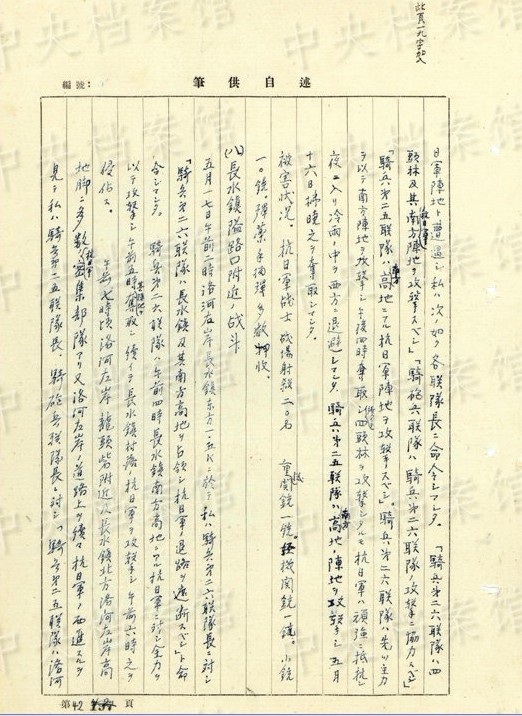 此頁一九字加入
編號：
筆供自述
日軍陣地ト遭遇シ私ハ次ノ如ク各联隊長ニ命令シマシタ。「騎兵第二六联隊ハ四
頭林及其南方抗日軍陣地ヲ攻撃スベシ」「騎砲兵联隊ハ騎兵第二六联隊ノ攻撃ニ協力スベシ」
「騎兵第二五联隊ハ南方高地ニアル抗日軍陣地ヲ攻撃スベシ」。騎兵第二六联隊ハ先ヅ主力
ヲ以テ南方陣地ヲ攻撃シ午后四時奪取シ四頭林ヲ攻撃シタルモ抗日軍ハ頑強ニ抵抗シ
夜ニ入リ冷雨ノ中ヲ西方ニ退避シマシタ。騎兵第二五联隊ハ南方高地ノ陣地ヲ攻撃シ五月
十六日拂曉之ヲ奪取シマシタ。
被害状况。抗日軍战士战傷射殺二〇名 重機関銃一銃。軽機関銃一銃。小銃
一〇銃。彈薬手榴彈多数押收。
(八)長水鎮隘路口附近ノ战斗
五月一七日午前二時洛河左岸長水鎮東方一・五K/ニ於テ私ハ騎兵第二六联隊長ニ対シ
「騎兵第二六联隊ハ長水鎮及其南方高地ヲ占領シ抗日軍ノ退路ヲ遮断スベシ」ト命
令シマシタ。騎兵第二六联隊ハ午前四時長水鎮南方高地ニアル抗日軍ニ対シ主力ヲ
以テ攻撃シ午前五時奪取シ続イテ長水鎮村落ノ抗日軍ヲ攻撃シ午前六時之ヲ
侵佔ス。午前七時頃洛河左岸龍頭砦附近及長水鎮北方洛河左岸高
地脚ニ多数ノ抗日軍密集部隊アリ又洛河左岸ノ道路上ヲ続々抗日軍ノ西進スルヲ
見テ私ハ騎兵第二五联隊長、騎砲兵联隊長ニ対シ「騎兵第二五联隊ハ洛河
第42頁